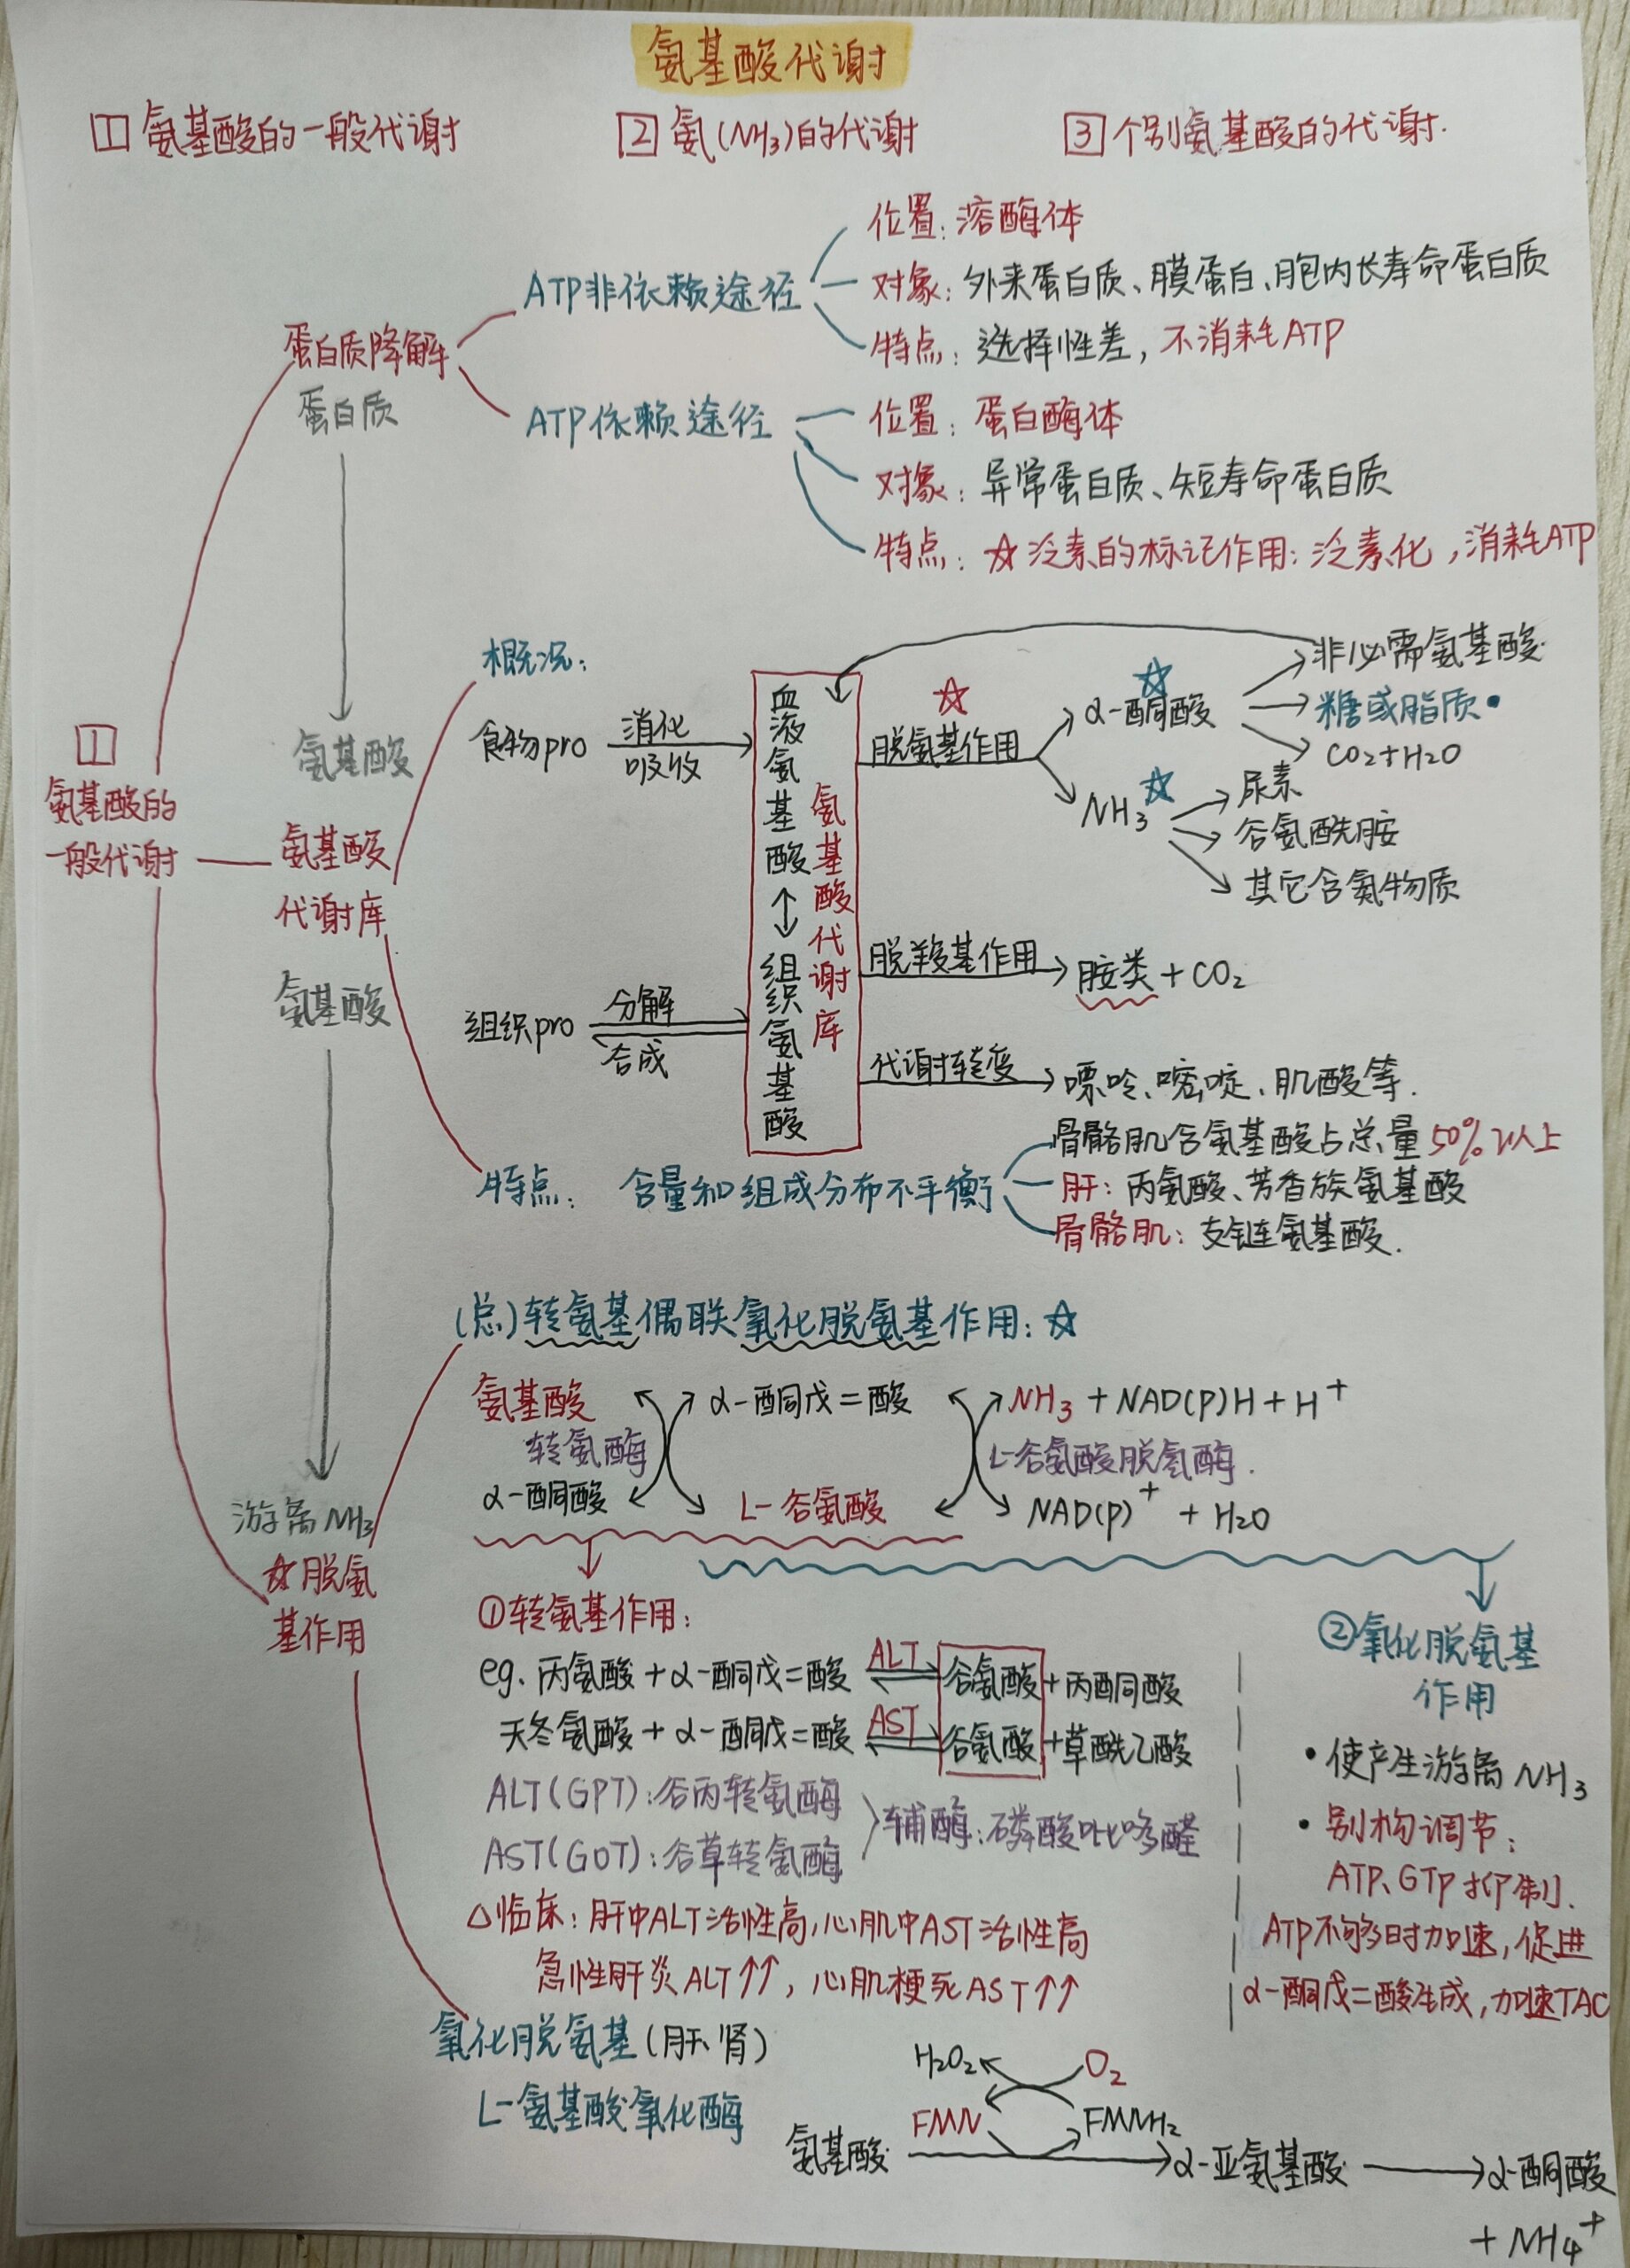 氨基酸代谢
1 氨基酸的一般代谢 2 氨(NH₃)的代谢 3 个别氨基酸的代谢.
1
氨基酸的
一般代谢
蛋白质降解
蛋白质
ATP非依赖途径
位置:溶酶体
对象:外来蛋白质、膜蛋白、胞内长寿命蛋白质
特点:选择性差,不消耗ATP
ATP依赖途径
位置:蛋白酶体
对象:异常蛋白质、短寿命蛋白质
特点:☆泛素的标记作用:泛素化,消耗ATP
氨基酸
氨基酸
代谢库
氨基酸
概况:
食物pro 消化
吸收
组织pro 分解
合成
血液氨基酸↔组织氨基酸
氨基酸代谢库
☆
脱氨基作用
☆
α-酮酸
非必需氨基酸
糖或脂质
CO₂+H₂O
NH₃ ☆
尿素
谷氨酰胺
其它含氮物质
脱羧基作用 → 胺类 + CO₂
代谢转变 → 嘌呤、嘧啶、肌酸等.
特点: 含量和组成分布不平衡
骨骼肌含氨基酸占总量50%以上
肝:丙氨酸、芳香族氨基酸
骨骼肌:支链氨基酸.
游离NH₃
☆脱氨
基作用
(总)转氨基偶联氧化脱氨基作用:☆
氨基酸 α-酮戊二酸 NH₃ + NAD(P)H + H⁺
转氨酶 L-谷氨酸脱氢酶.
α-酮酸 L-谷氨酸 NAD(P)⁺ + H₂O
①转氨基作用:
eg. 丙氨酸 + α-酮戊二酸 ALT 谷氨酸 + 丙酮酸
天冬氨酸 + α-酮戊二酸 AST 谷氨酸 + 草酰乙酸
ALT(GPT):谷丙转氨酶
AST(GOT):谷草转氨酶
辅酶:磷酸吡哆醛
△临床:肝中ALT活性高,心肌中AST活性高
急性肝炎ALT↑↑,心肌梗死AST↑↑
②氧化脱氨基
作用
•使产生游离NH₃
•别构调节:
ATP、GTP抑制.
ATP不够时加速,促进
α-酮戊二酸生成,加速TAC
氧化脱氨基(肝、肾)
L-氨基酸氧化酶
H₂O₂ O₂
FMN FMNH₂
氨基酸 → α-亚氨基酸 → α-酮酸
+ NH₄⁺